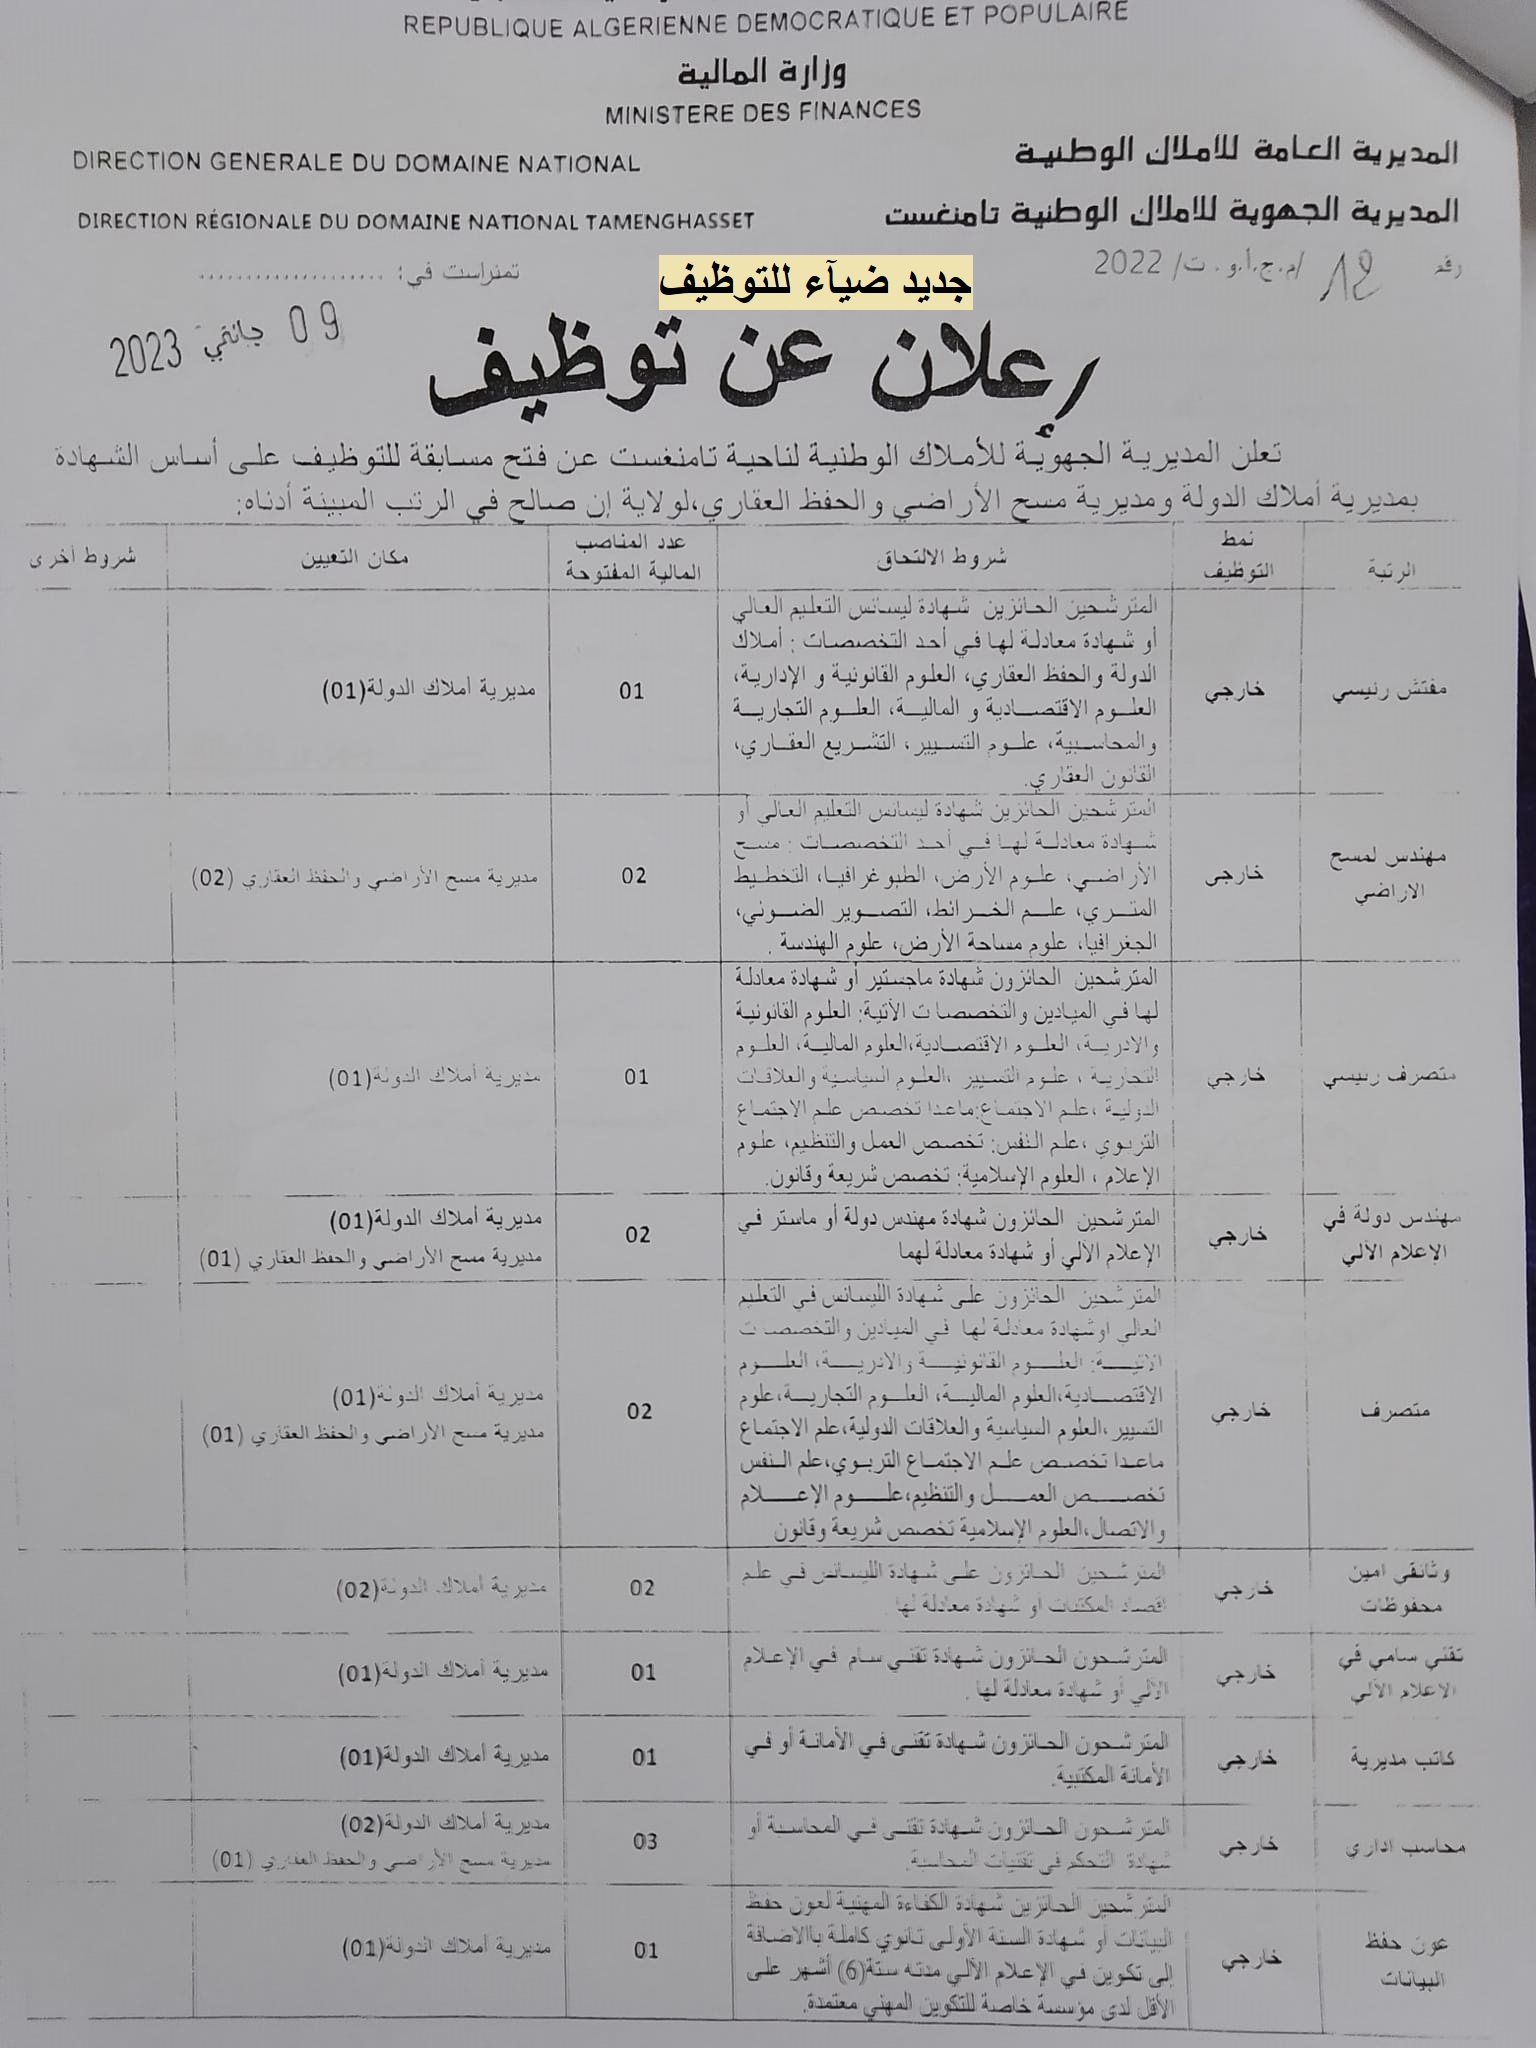 REPUBLIQUE ALGERIENNE DEMOCRATIQUE ET POPULAIRE
وزارة المالية
MINISTERE DES FINANCES
المديرية العامة للاملاك الوطنية
DIRECTION GENERALE DU DOMAINE NATIONAL
المديرية الجهوية للاملاك الوطنية تامنغست
DIRECTION RÉGIONALE DU DOMAINE NATIONAL TAMENGHASSET
رقم 12 /م.ج.أ.و.ت/ 2022
جديد ضيآء للتوظيف
تمنراست في: ....................
09 جانفي 2023
إعلان عن توظيف
تعلن المديرية الجهوية للأملاك الوطنية لناحية تامنغست عن فتح مسابقة للتوظيف على أساس الشهادة
بمديرية أملاك الدولة ومديرية مسح الأراضي والحفظ العقاري،لولاية إن صالح في الرتب المبينة أدناه:
الرتبة
نمط
التوظيف
شروط الالتحاق
عدد المناصب
المالية المفتوحة
مكان التعيين
شروط أخرى
مفتش رئيسي
خارجي
المترشحين الحائزين شهادة ليسانس التعليم العالي
أو شهادة معادلة لها في أحد التخصصات : أملاك
الدولة والحفظ العقاري، العلوم القانونية و الإدارية،
العلوم الاقتصادية و المالية، العلوم التجارية
والمحاسبية، علوم التسيير، التشريع العقاري،
القانون العقاري.
01
مديرية أملاك الدولة(01)
مهندس لمسح
الاراضي
خارجي
المترشحين الحائزين شهادة ليسانس التعليم العالي أو
شهادة معادلة لها في أحد التخصصات : مسح
الأراضي، علوم الأرض، الطبوغرافيا، التخطيط
المتري، علم الخرائط، التصوير الضوئي،
الجغرافيا، علوم مساحة الأرض، علوم الهندسة .
02
مديرية مسح الأراضي والحفظ العقاري (02)
متصرف رئيسي
خارجي
المترشحين الحائزون شهادة ماجستير أو شهادة معادلة
لها في الميادين والتخصصات الأتية: العلوم القانونية
والادرية، العلوم الاقتصادية،العلوم المالية، العلوم
التجارية ، علوم التسيير ،العلوم السياسية والعلاقات
الدولية ،علم الاجتماع:ماعدا تخصص علم الاجتماع
التربوي ،علم النفس: تخصص العمل والتنظيم، علوم
الإعلام ، العلوم الإسلامية: تخصص شريعة وقانون.
01
مديرية أملاك الدولة(01)
مهندس دولة في
الإعلام الآلي
خارجي
المترشحين الحائزون شهادة مهندس دولة أو ماستر في
الإعلام الآلي أو شهادة معادلة لهما
02
مديرية أملاك الدولة(01)
مديرية مسح الأراضي والحفظ العقاري (01)
متصرف
خارجي
المترشحين الحائزون على شهادة الليسانس في التعليم
العالي اوشهادة معادلة لها في الميادين والتخصصات
الاتية: العلوم القانونية والادرية، العلوم
الاقتصادية،العلوم المالية، العلوم التجارية،علوم
التسيير،العلوم السياسية والعلاقات الدولية،علم الاجتماع
ماعدا تخصص علم الاجتماع التربوي،علم النفس
تخصص العمل والتنظيم،علوم الإعلام
والاتصال،العلوم الإسلامية تخصص شريعة وقانون
02
مديرية أملاك الدولة(01)
مديرية مسح الأراضي والحفظ العقاري (01)
وثائقي امين
محفوظات
خارجي
المترشحين الحائزون على شهادة الليسانس في علم
اقصاد المكتبات أو شهادة معادلة لها .
02
مديرية أملاك الدولة(02)
تقني سامي في
الإعلام الآلي
خارجي
المترشحون الحائزون شهادة تقني سام في الإعلام
الآلي أو شهادة معادلة لها .
01
مديرية أملاك الدولة(01)
كاتب مديرية
خارجي
المترشحون الحائزون شهادة تقني في الأمانة أو في
الأمانة المكتبية.
01
مديرية أملاك الدولة(01)
محاسب اداري
خارجي
المترشحون الحائزون شهادة تقني في المحاسبة أو
شهادة التحكم في تقنيات المحاسبة.
03
مديرية أملاك الدولة(02)
مديرية مسح الأراضي والحفظ العقاري (01)
عون حفظ
البيانات
خارجي
المترشحين الحائزين شهادة الكفاءة المهنية لعون حفظ
البيانات أو شهادة السنة الأولى ثانوي كاملة باالاضافة
إلى تكوين في الإعلام الآلي مدته ستة(6) أشهر على
الأقل لدى مؤسسة خاصة للتكوين المهني معتمدة.
01
مديرية أملاك الدولة(01)